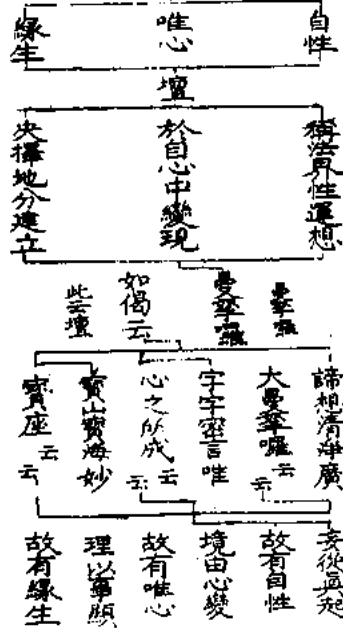 自性
唯心
緣生
壇
稱法界性運想
於自心中變現
央擇地分建立
曼拏囉
曼拏囉
如偈云
此云壇
諦想清淨廣
大曼拏囉云云
字字密言唯
心之所成云云
寶山寶海妙
寶座云云
妄從真起
故有自性
境由心變
故有唯心
理以事顯
故有緣生